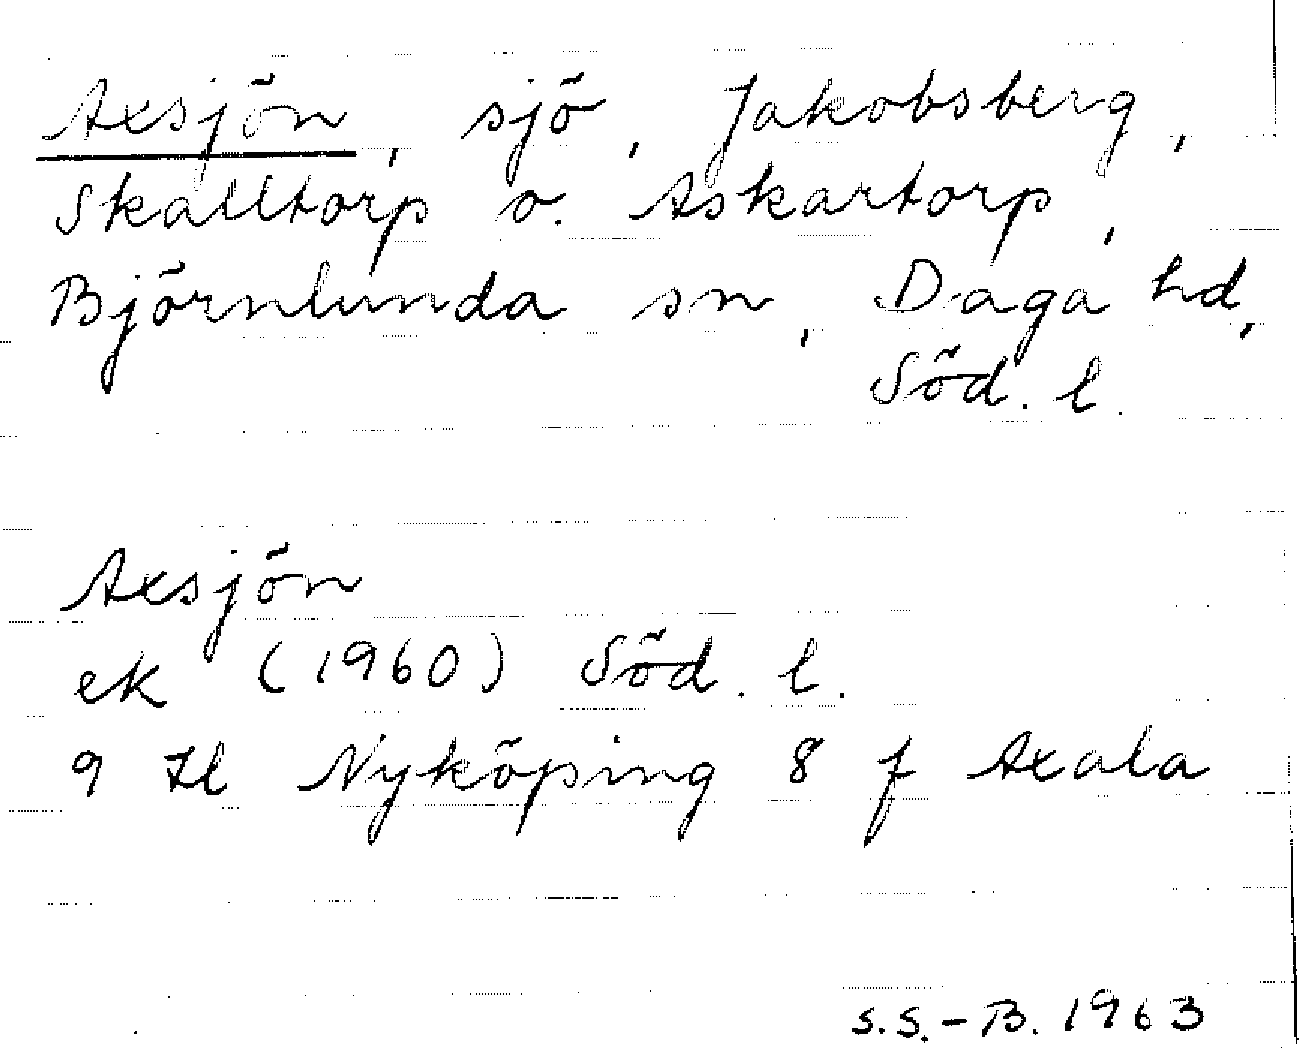 Axsjön, sjö, Jakobsberg,
Skalltorp o. Askartorp,
Björnlunda sn, Daga hd,
Söd. l.
Axsjön
ek (1960) Söd. l.
9 H Nyköping 8 f Axala
S.S.-B. 1963